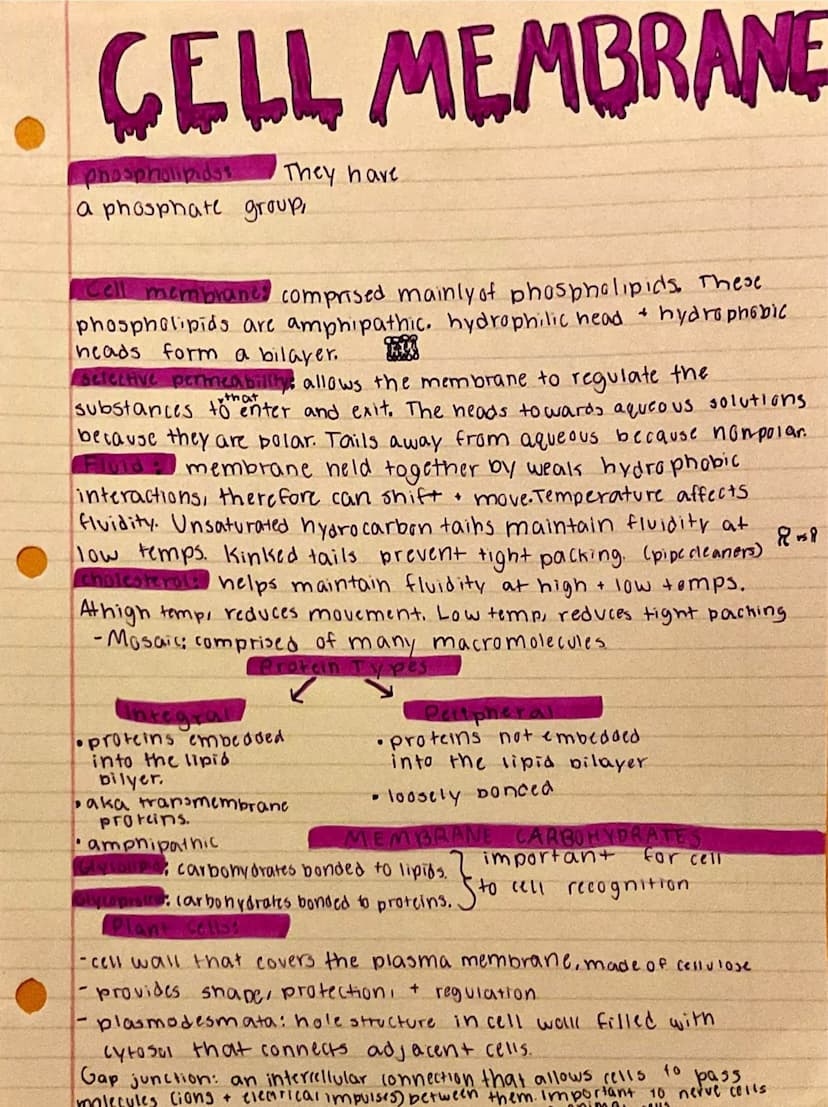 CELL MEMBRANE
phospholipids: They have
a phosphate group,
Cell membrane: comprised mainly of phospholipids. These
phospholipids are amphipathic. hydrophilic head + hydrophobic
heads form a bilayer.
selective permeability: allows the membrane to regulate the
substances to that enter and exit. The heads towards aqueous solutions
because they are polar. Tails away from aqueous because nonpolar.
Fluid: membrane held together by weak hydrophobic
interactions, therefore can shift + move. Temperature affects
fluidity. Unsaturated hydrocarbon tails maintain fluidity at
low temps. Kinked tails prevent tight packing. (pipe cleaners)
cholesterol: helps maintain fluidity at high + low temps.
At high temp, reduces movement. Low temp, reduces tight packing
- Mosaic: comprised of many macromolecules
Protein Types
Integral
• proteins embedded
into the lipid
bilyer.
• aka transmembrane
proteins.
• amphipathic
Peripheral
• proteins not embedded
into the lipid bilayer
• loosely bonded
MEMBRANE CARBOHYDRATES
Glycolipid: carbohydrates bonded to lipids.
Glycoprotein: carbohydrates bonded to proteins.
important for cell
to cell recognition
Plant Cells:
- cell wall that covers the plasma membrane, made of cellulose
- provides shape, protection, + regulation
- plasmodesmata: hole structure in cell wall filled with
cytosol that connects adjacent cells.
Gap junction: an intercellular connection that allows cells to pass
molecules (ions + electrical impulses) between them. important to nerve cells